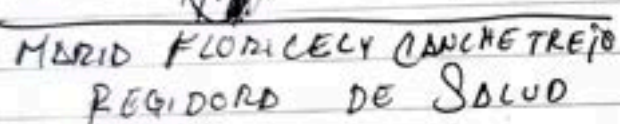 MARIA FLORICELY CANCHE TREJO
REGIDORA DE SALUD